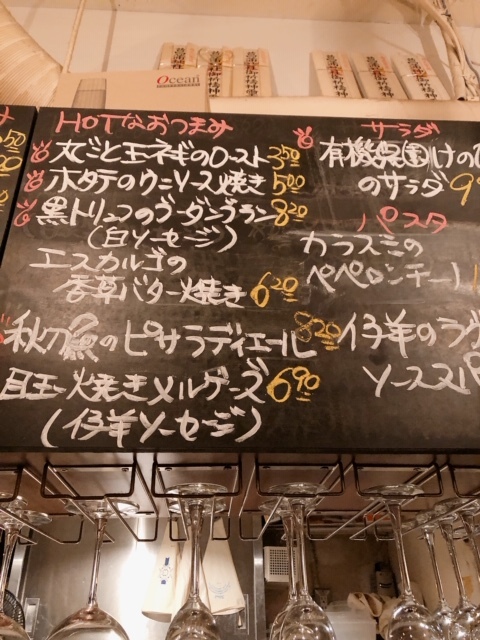 Ocean
HOTなおつまみ
丸ごと玉ネギのロースト 350
ホタテのウニソース焼き 500
黒トリュフのブーダンブラン 820
(白ソーセージ)
エスカルゴの
香草バター焼き 620
秋刀魚のピサラディエール 820
目玉焼きメルゲーズ 690
(仔羊ソーセージ)
サラダ
有機
のサラダ 9
パスタ
カラスミの
ペペロンチーノ 1
仔羊のラグ
ソース
50